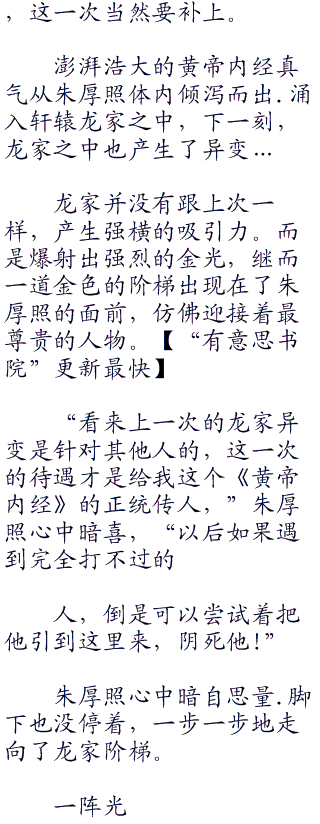 ，这一次当然要补上。
澎湃浩大的黄帝内经真
气从朱厚照体内倾泻而出.涌
入轩辕龙家之中，下一刻，
龙家之中也产生了异变…
龙家并没有跟上次一
样，产生强横的吸引力。而
是爆射出强烈的金光，继而
一道金色的阶梯出现在了朱
厚照的面前，仿佛迎接着最
尊贵的人物。【“有意思书
院”更新最快】
“看来上一次的龙家异
变是针对其他人的，这一次
的待遇才是给我这个《黄帝
内经》的正统传人，”朱厚
照心中暗喜，“以后如果遇
到完全打不过的
人，倒是可以尝试着把
他引到这里来，阴死他!”
朱厚照心中暗自思量.脚
下也没停着，一步一步地走
向了龙家阶梯。
一阵光